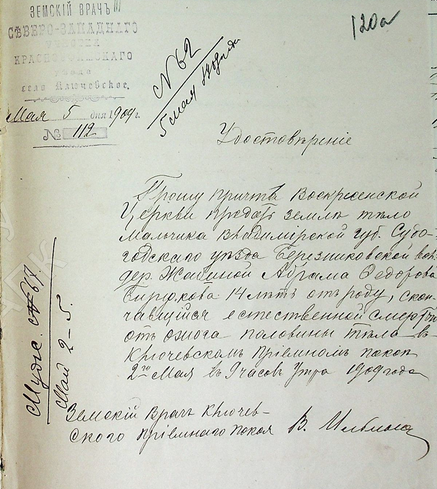 ЗЕМСКІЙ ВРАЧЪ
СѢВЕРО-ЗАПАДНАГО
КРАСНОУФИМСКАГО
уѣзда
село Ключевское.
Мая 5 дня 1909 г.
№ 112
120а
№ 62
5 мая 1909 года
Удостовѣреніе
Прошу причтъ Воскресенской
Церкви предать землѣ тѣло
мальчика Владимірской губ. Судо-
годскаго уѣзда Березниковской вол.
дер. Абрама Ѳедорова
14 лѣтъ отъ роду, скон-
чавшійся естественной смертью
отъ ожога половины тѣла въ
Ключевскомъ пріемномъ покоѣ
2го Мая въ 9 часовъ утра 1909 года
Земскій Врачъ Ключев-
ского пріемнаго покоя В.
Мужс. № 67.
Май 2-5.